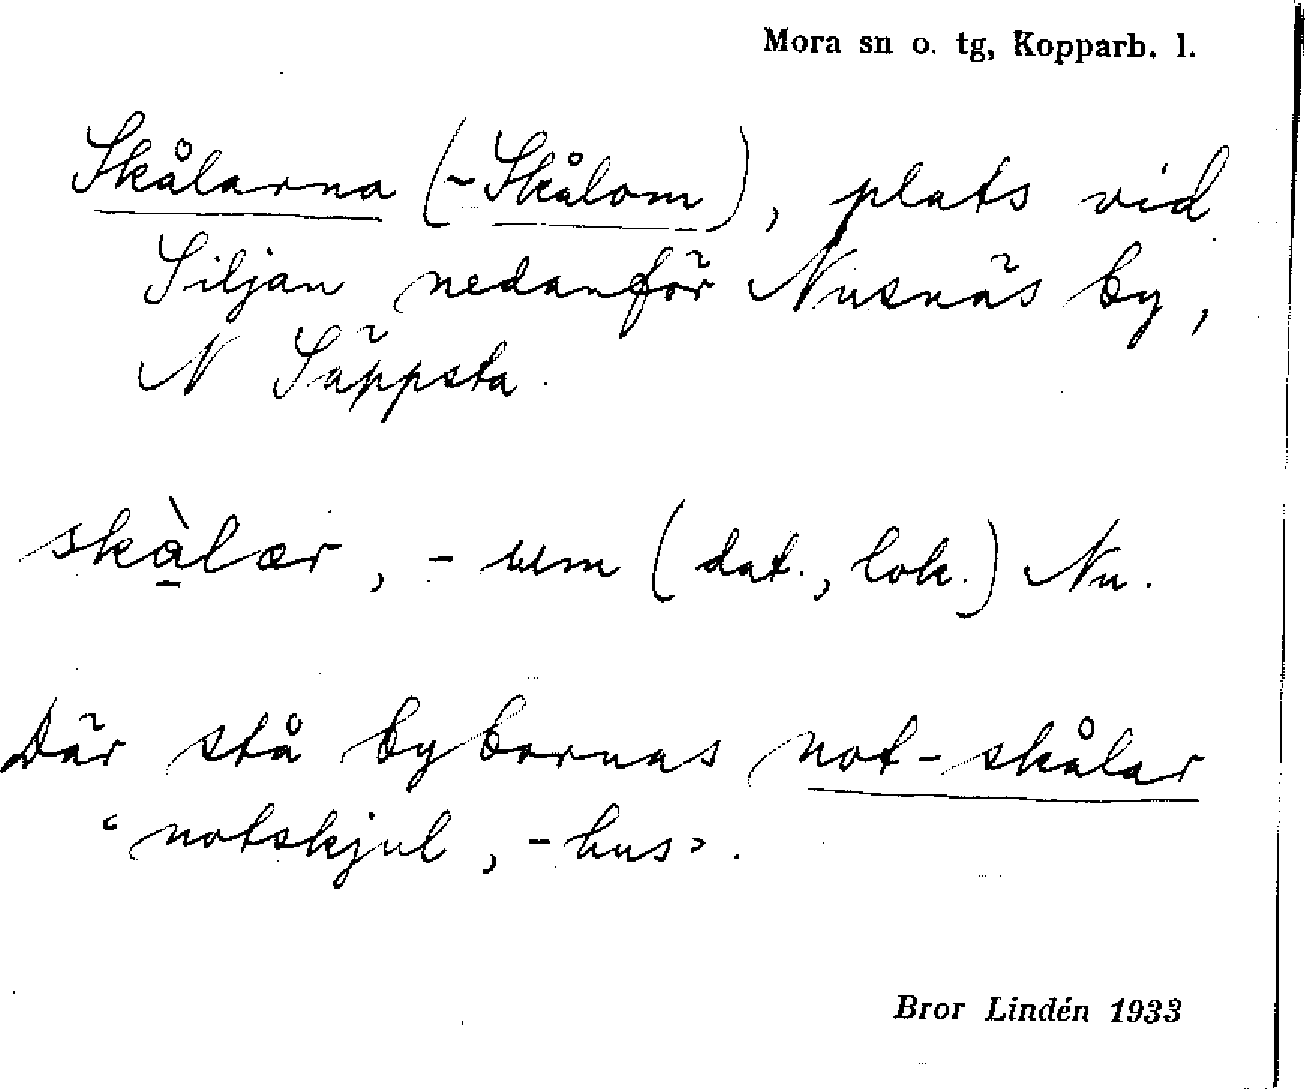 Mora sn o. tg, Kopparb. l.
Skålarna (-Skålom), plats vid
Siljan nedanför Nusnäs by,
N Säppsta.
skà̠lær, -um (dat., lok.) Nu.
Där stå bybornas not-skålar
‘notskjul, -hus’.
Bror Lindén 1933